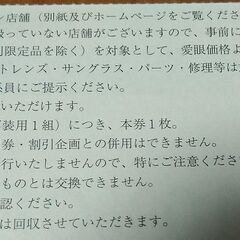 ン店舗(別紙及びホームページをご覧くださ
扱っていない店舗がございますので、事前に
別限定品を除く)を対象として、愛眼価格よ
トレンズ・サングラス・パーツ・修理等は
係員にご提示ください。
いただけます。
装用1組)につき、本券1枚。
券・割引企画との併用はできません。
行いたしませんので、特にご注意くださ
ものとは交換できません。
認ください。
は回収させていただきます。